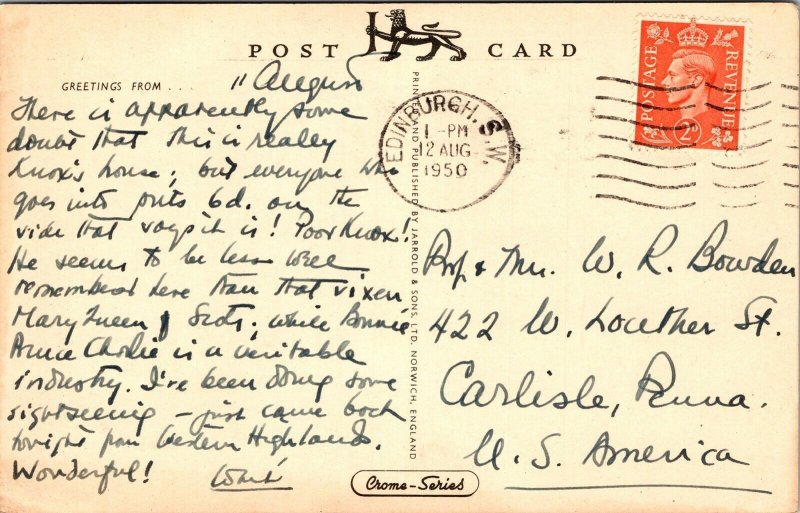 POST CARD
GREETINGS FROM . . .
11 August
There is apparently some
doubt that this is really
Knox's house; but everyone who
goes into puts 6d. on the
side that says it is! Poor Knox!
He seems to be less well
remembered here than that vixen
Mary Queen of Scots; while Bonnie
Prince Charlie is a veritable
industry. I've been doing some
sightseeing – just came back
tonight from Western Highlands.
Wonderful!
PRINTED AND PUBLISHED BY JARROLD & SONS, LTD. NORWICH, ENGLAND
Crome-Series
EDINBURGH. S.W.
1-PM
12 AUG
1950
POSTAGE REVENUE
2D
Prof & Mrs. W. R. Bowden
422 W. Louther St.
Carlisle, Penna.
U. S. America